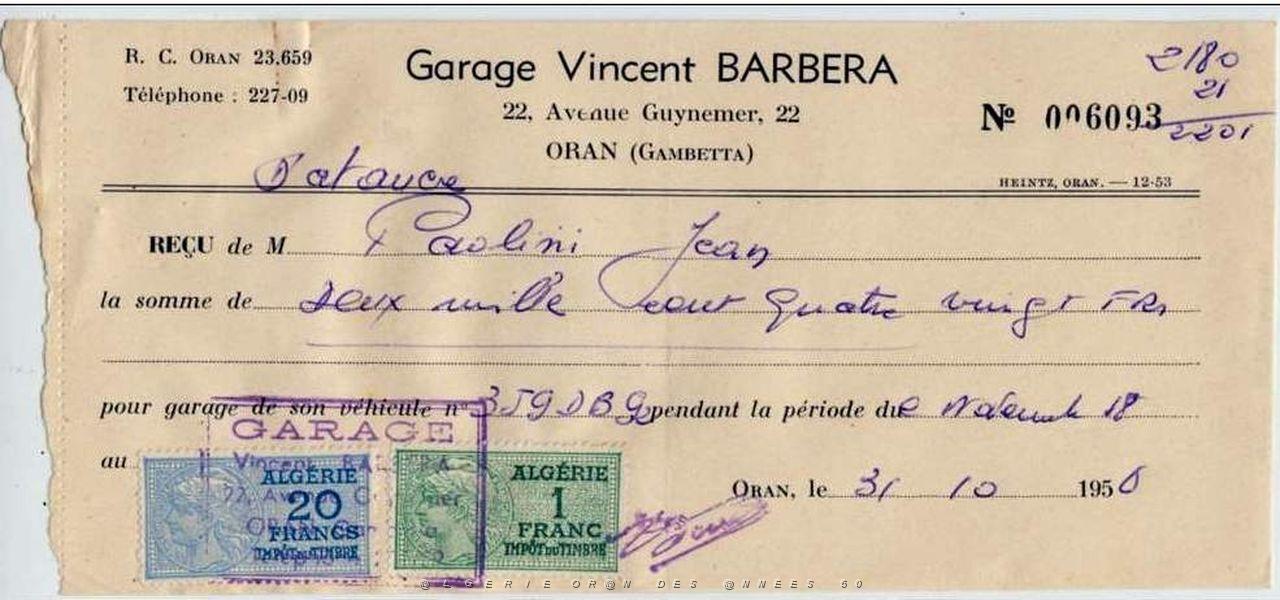 R. C. ORAN 23.659
Téléphone : 227-09
Garage Vincent BARBERA
22, Avenue Guynemer, 22
ORAN (GAMBETTA)
2180
21
2201
Nº 006093
HEINTZ, ORAN. — 12-53
REÇU de M Paolini Jean
la somme de Deux mille cent quatre vingt FRs
pour garage de son véhicule nº 359 DB 9 pendant la période du
au
GARAGE
Vincent BARBERA
ALGÉRIE
20
FRANCS
IMPÔT DU TIMBRE
ALGÉRIE
1
FRANC
IMPÔT DU TIMBRE
ORAN, le 31 10 1956
@LGERIE OR@N DES @NNEES 50